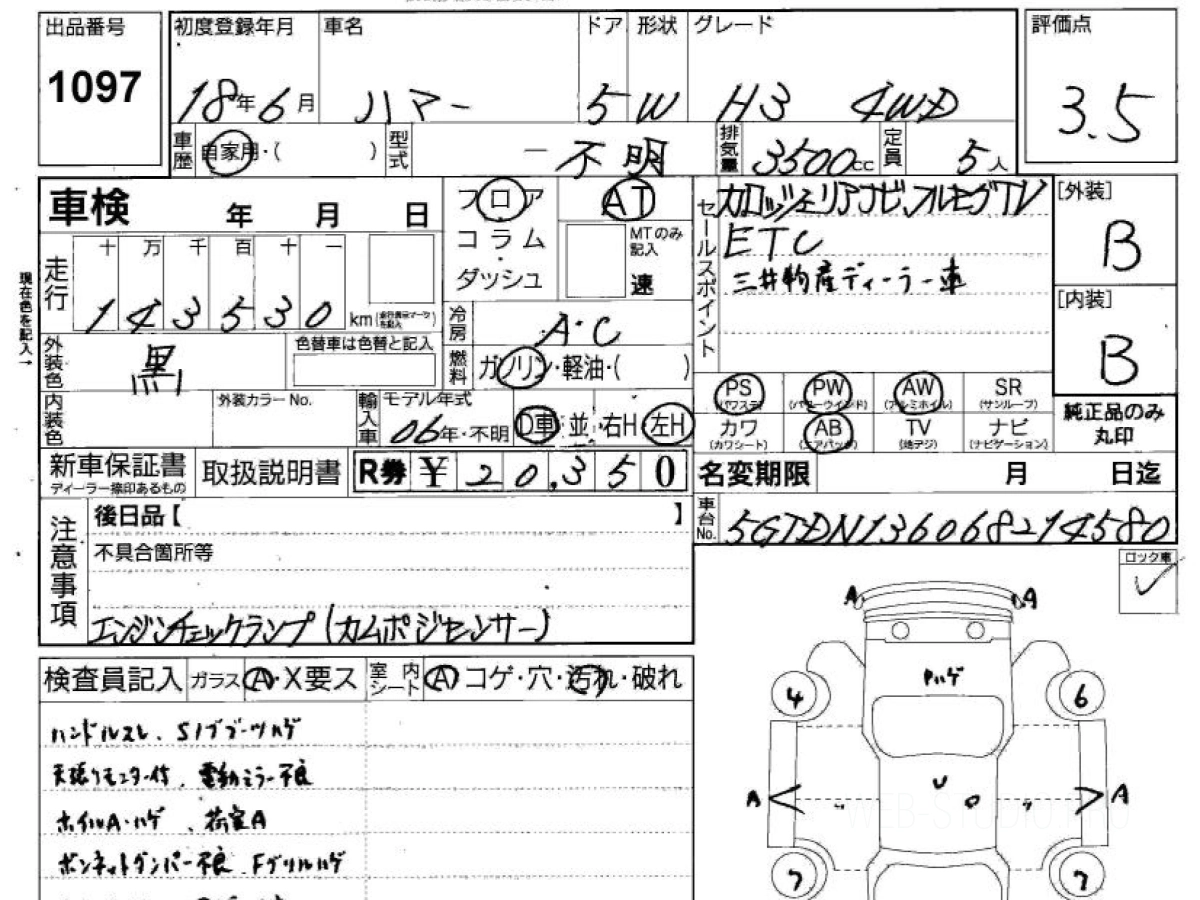 出品番号 初度登録年月 車名 ドア 形状 グレード 評価点
1097 18年6月 ハマー 5 W H3 4WD 3.5
車歴 自家用・( ) 型式 ー 不明 排気量 3500cc 定員 5人
車検 年 月 日 フロア AT セールスポイント カロッツェリアナビ、フルセグTV [外装]
コラム MTのみ記入 ETC B
走行 十 万 千 百 十 一 ダッシュ 速 三井物産ディーラー車
143530 km [内装]
現在色を記入→
冷房 A・C B
外装色 黒 色替車は色替と記入 燃料 ガソリン・軽油・( )
PS (パワステ) PW (パワーウインド) AW (アルミホイル) SR (サンルーフ) 純正品のみ丸印
内装色 外装カラーNo. 輸入車 モデル年式 06年・不明 D車 並 右H 左H カワ (カワシート) AB (エアバッグ) TV (地デジ) ナビ (ナビゲーション)
新車保証書 ディーラー捺印あるもの 取扱説明書 R券 ¥ 20,350 名変期限 月 日迄
注意事項 後日品【 】 車台No. 5GTDN136068214580
不具合箇所等 ロック車
エンジンチェックランプ(カムポジセンサー)
A A
検査員記入 ガラス A・X要ス 室内シート A コゲ・穴・汚れ・破れ
ハゲ
4 6
ハンドルスレ、Sノブブーツハゲ
天張りモニター付、電動ミラー不良
A A
ホイルA・ハゲ、荷室A
WEB-STUDIO.PRO
ボンネットダンパー不良、Fグリルハゲ
7 7